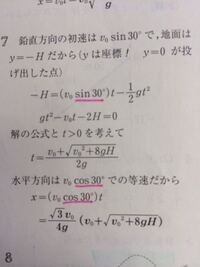 7 鉛直方向の初速は v₀ sin 30° で,地面は
y=−H だから (y は座標! y=0 が投
げ出した点)
−H=(v₀ sin 30°)t−\frac{1}{2}gt²
gt²−v₀t−2H=0
解の公式と t>0 を考えて
t=\frac{v₀+\sqrt{v₀²+8gH}}{2g}
水平方向は v₀ cos 30° での等速だから
x=(v₀ cos 30°)t
=\frac{\sqrt{3}v₀}{4g}(v₀+\sqrt{v₀²+8gH})
8